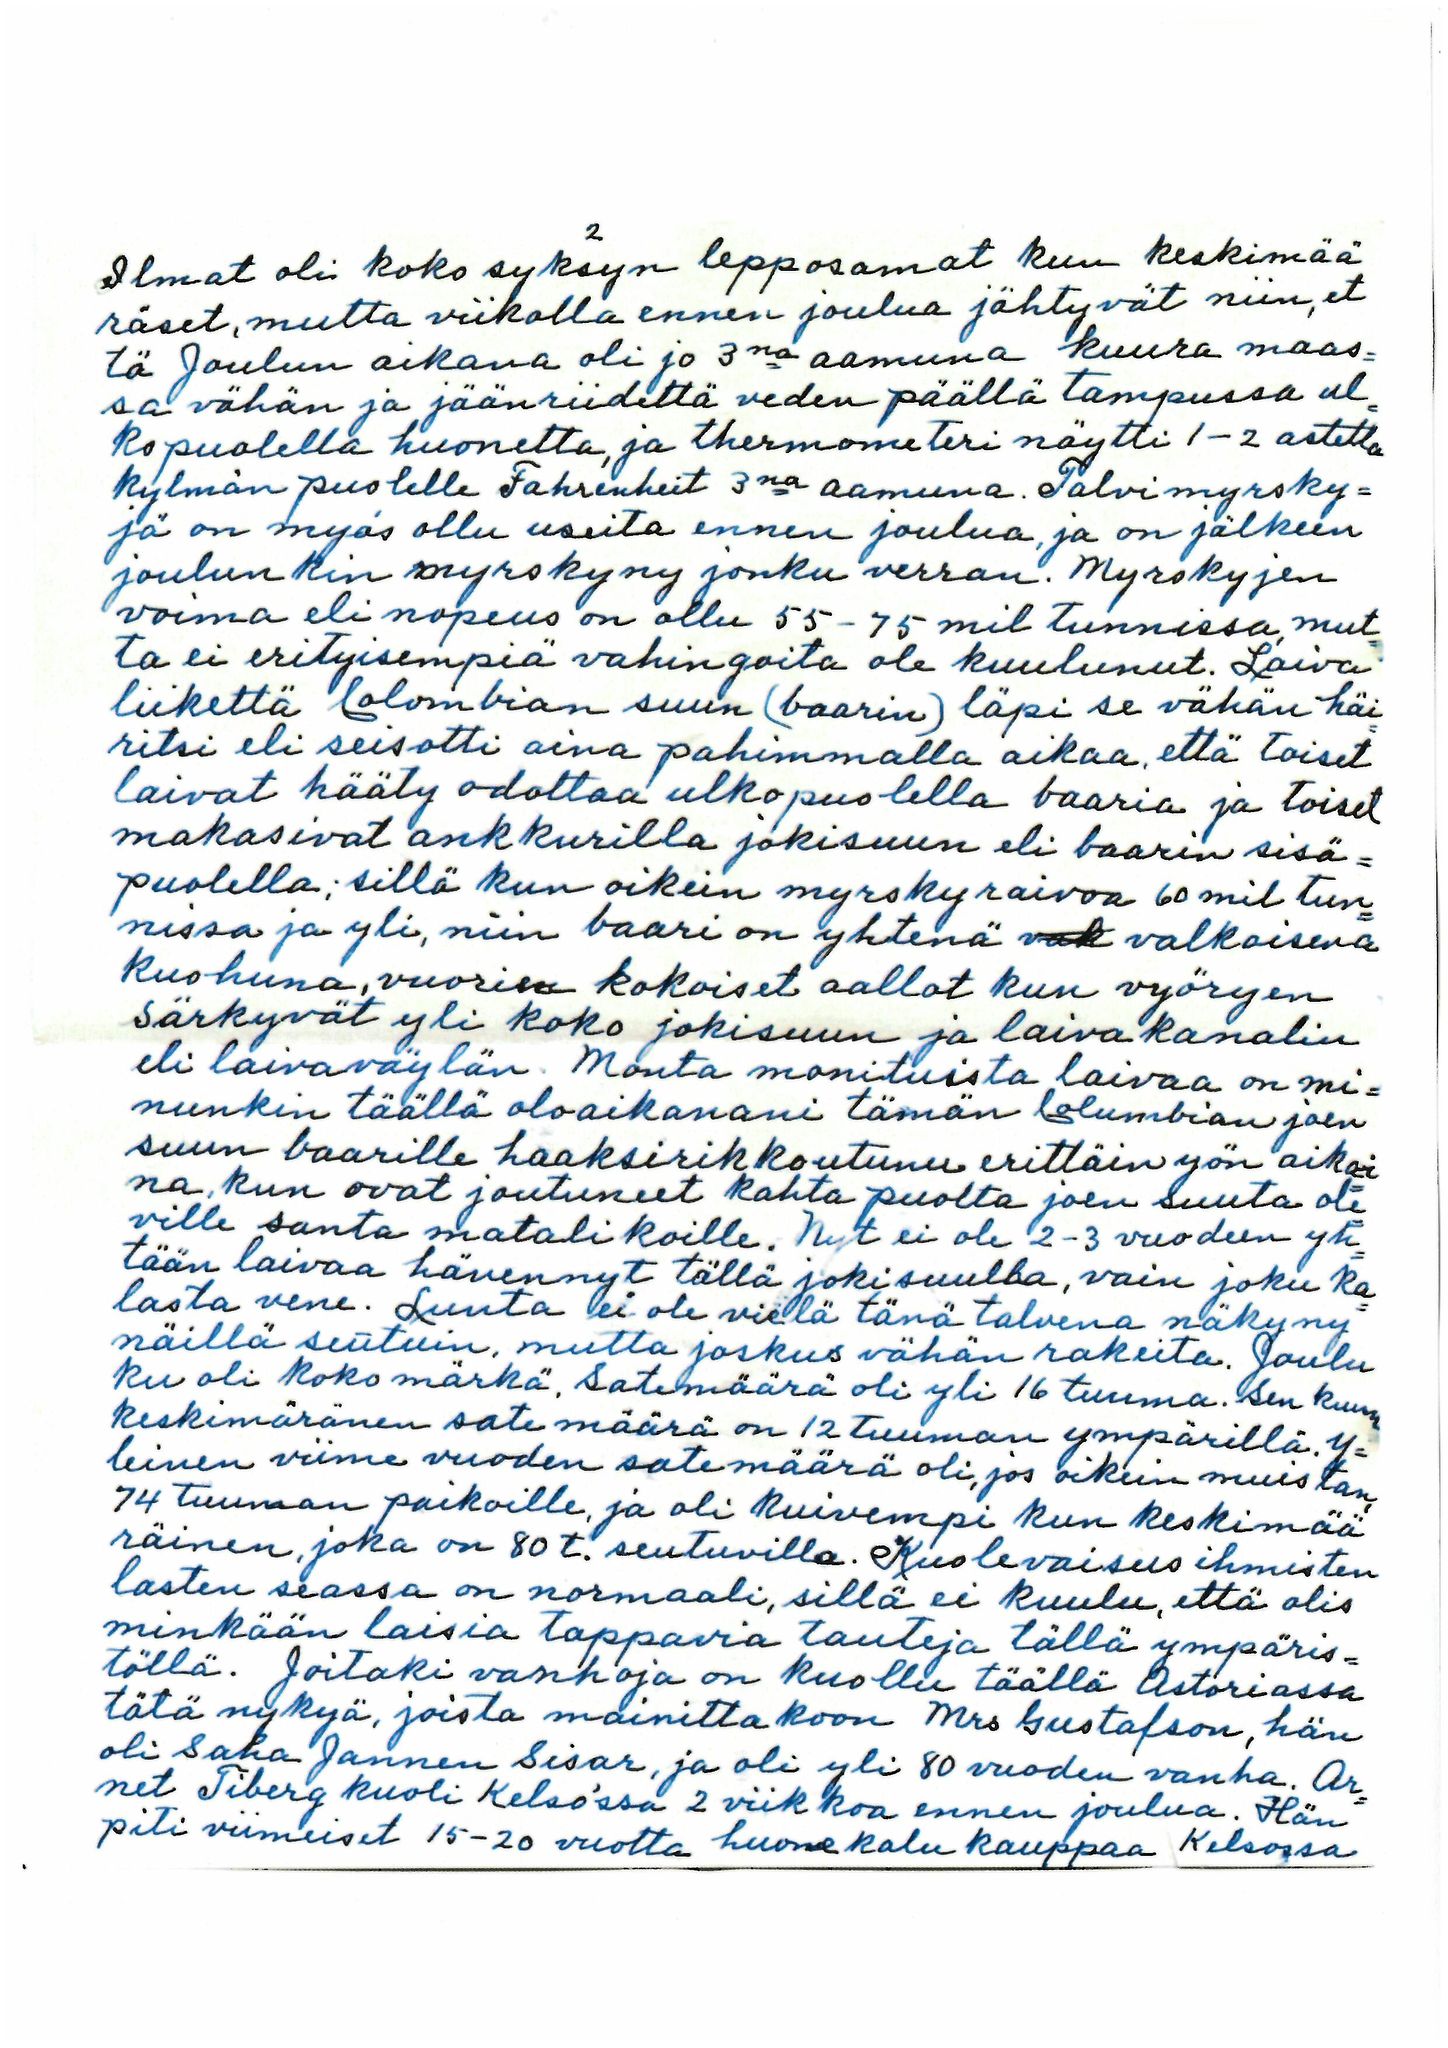 2
Ilmat oli koko syksyn lepposamat kuu keskimää
räset, mutta viikolla ennen joulua jähtyvät niin, et
tä Joulun aikana oli jo 3na aamuna kuura maas=
sa vähän ja jäänriidettä veden päällä tampussa ul=
kopuolella huonetta, ja thermometeri näytti 1-2 astetta
kylmän puolelle Fahrenheit 3na aamuna. Talvimyrsky=
jä on myös ollu useita ennen joulua, ja on jälkeen
joulunkin myrskyny jonku verran. Myrskyjen
voima eli nopeus on ollu 55-75 mil tunnissa, mut=
ta ei erityisempiä vahingoita ole kuulunut. Laiva
liikettä Colombian suun (baarin) läpi se vähän häi=
ritsi eli seisotti aina pahimmalla aikaa, että toiset
laivat hääty odottaa ulkopuolella baaria ja toiset
makasivat ankkurilla jokisuun eli baarin sisä=
puolella; sillä kun oikein myrsky raivoa 60 mil tun=
nissa ja yli, niin baari on yhtenä vak valkoisena
kuohuna, vuorien kokoiset aallot kun vyöryen
särkyvät yli koko jokisuun ja laivakanalin
eli laivaväylän. Monta monituista laivaa on mi=
nunkin täällä oloaikanani tämän Columbian joen
suun baarille haaksirikkoutunu erittäin yön aikoi
na, kun ovat joutuneet kahta puolta joen suuta ole=
ville santa matalikoille. Nyt ei ole 2-3 vuodeen yh=
tään laivaa hävennyt tällä jokisuulla, vain joku ka=
lasta vene. Lunta ei ole vielä tänä talvena näkyny
näillä seutuin, mutta joskus vähän rakeita. Joulu
ku oli koko märkä, Satemäärä oli yli 16 tuuma. Sen kuun
keskimäränen sate määrä on 12 tuuman ympärillä. Y=
leinen viime vuoden satemäärä oli, jos oikein muistan,
74 tuuman paikoille, ja oli kuivempi kun keskimää
räinen, joka on 80 t. seutuvilla. Kuolevaisus ihmisten
lasten seassa on normaali, sillä ei kuulu, että olis
minkään laisia tappavia tauteja tällä ympäris=
töllä. Joitaki vanhoja on kuollu täällä Astoriassa
tätä nykyä, joista mainittakoon Mrs Gustafson, hän
oli Saha Jannen Sisar, ja oli yli 80 vuoden vanha. Ar=
net Tiberg kuoli Kelso'ssa 2 viikkoa ennen joulua. Hän
piti viimeiset 15-20 vuotta huonekalu kauppaa Kelsossa